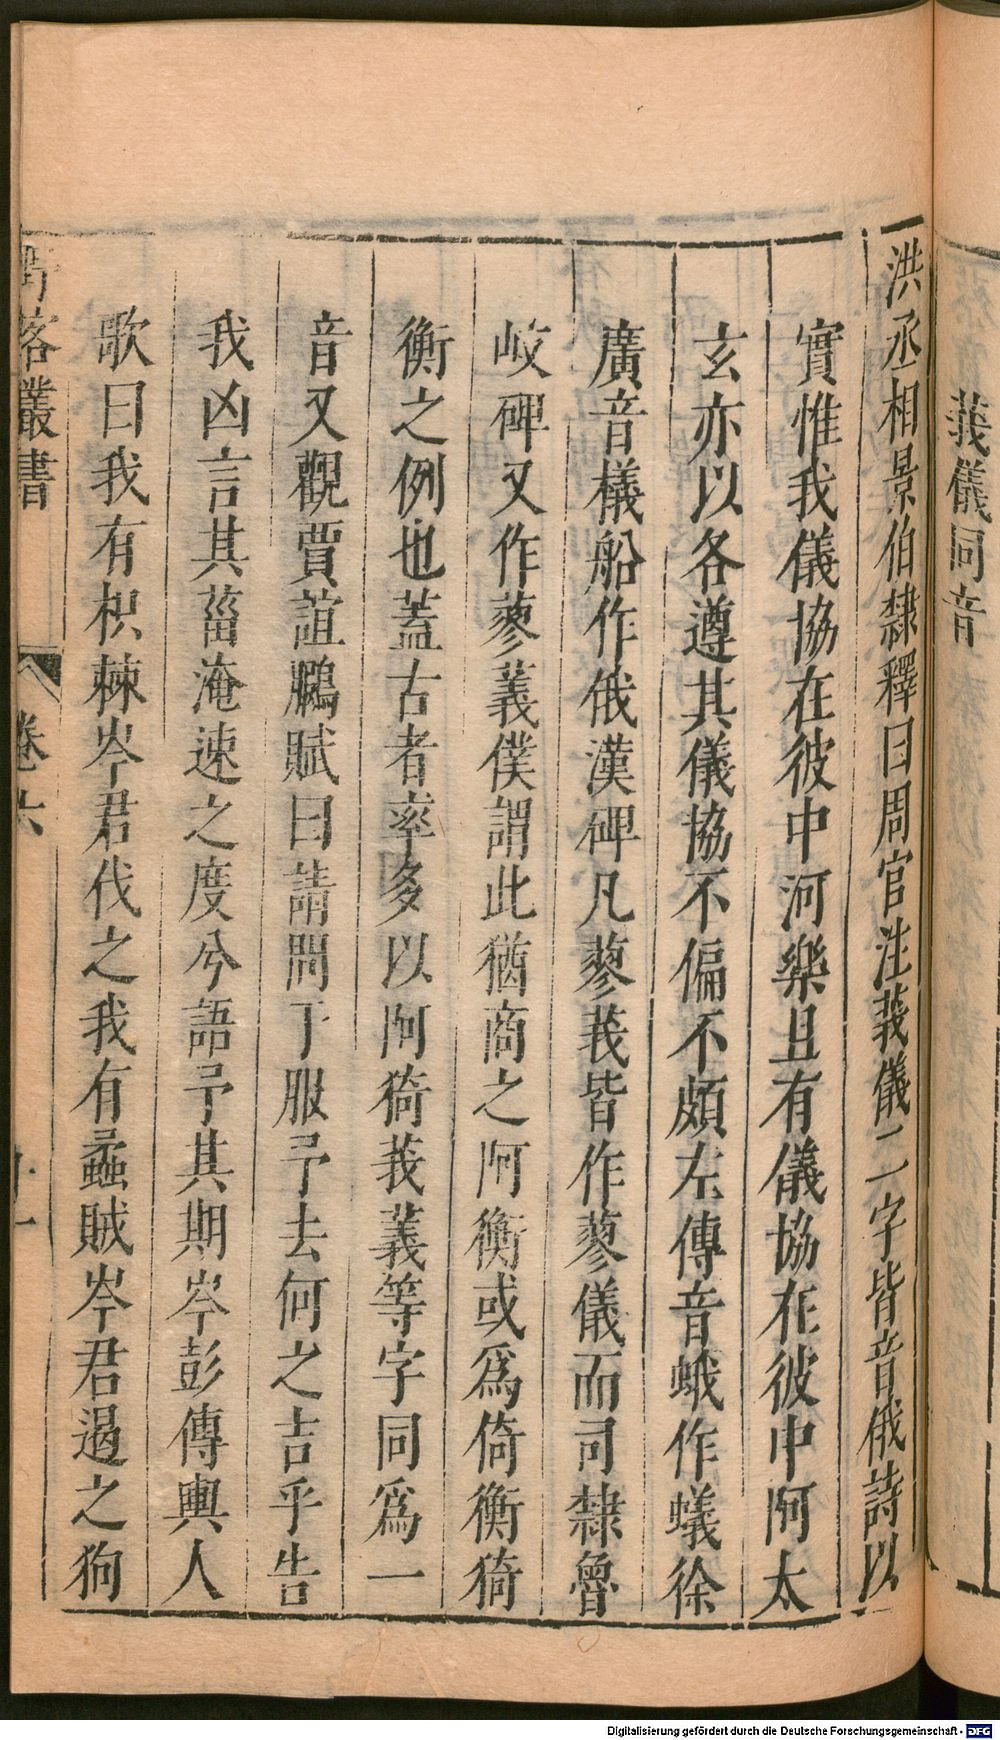 義儀同音
洪丞相景伯隸釋曰周官注莪儀二字皆音俄詩以
實惟我儀協在彼中河樂且有儀協在彼中阿太
玄亦以各遵其儀協不偏不頗左傳音蛾作蟻徐
廣音檥船作俄漢碑凡蓼莪皆作蓼儀而司隸魯
峻碑又作蓼義僕謂此猶商之阿衡或爲倚衡猗
衡之例也蓋古者率多以阿猗莪義等字同爲一
音又觀賈誼鵩賦曰請問于服予去何之吉乎告
我凶言其菑淹速之度兮語予其期岑彭傳輿人
歌曰我有枳棘岑君伐之我有蟊賊岑君遏之狗
客叢書 卷六 十一
Digitalisierung gefördert durch die Deutsche Forschungsgemeinschaft - DFG